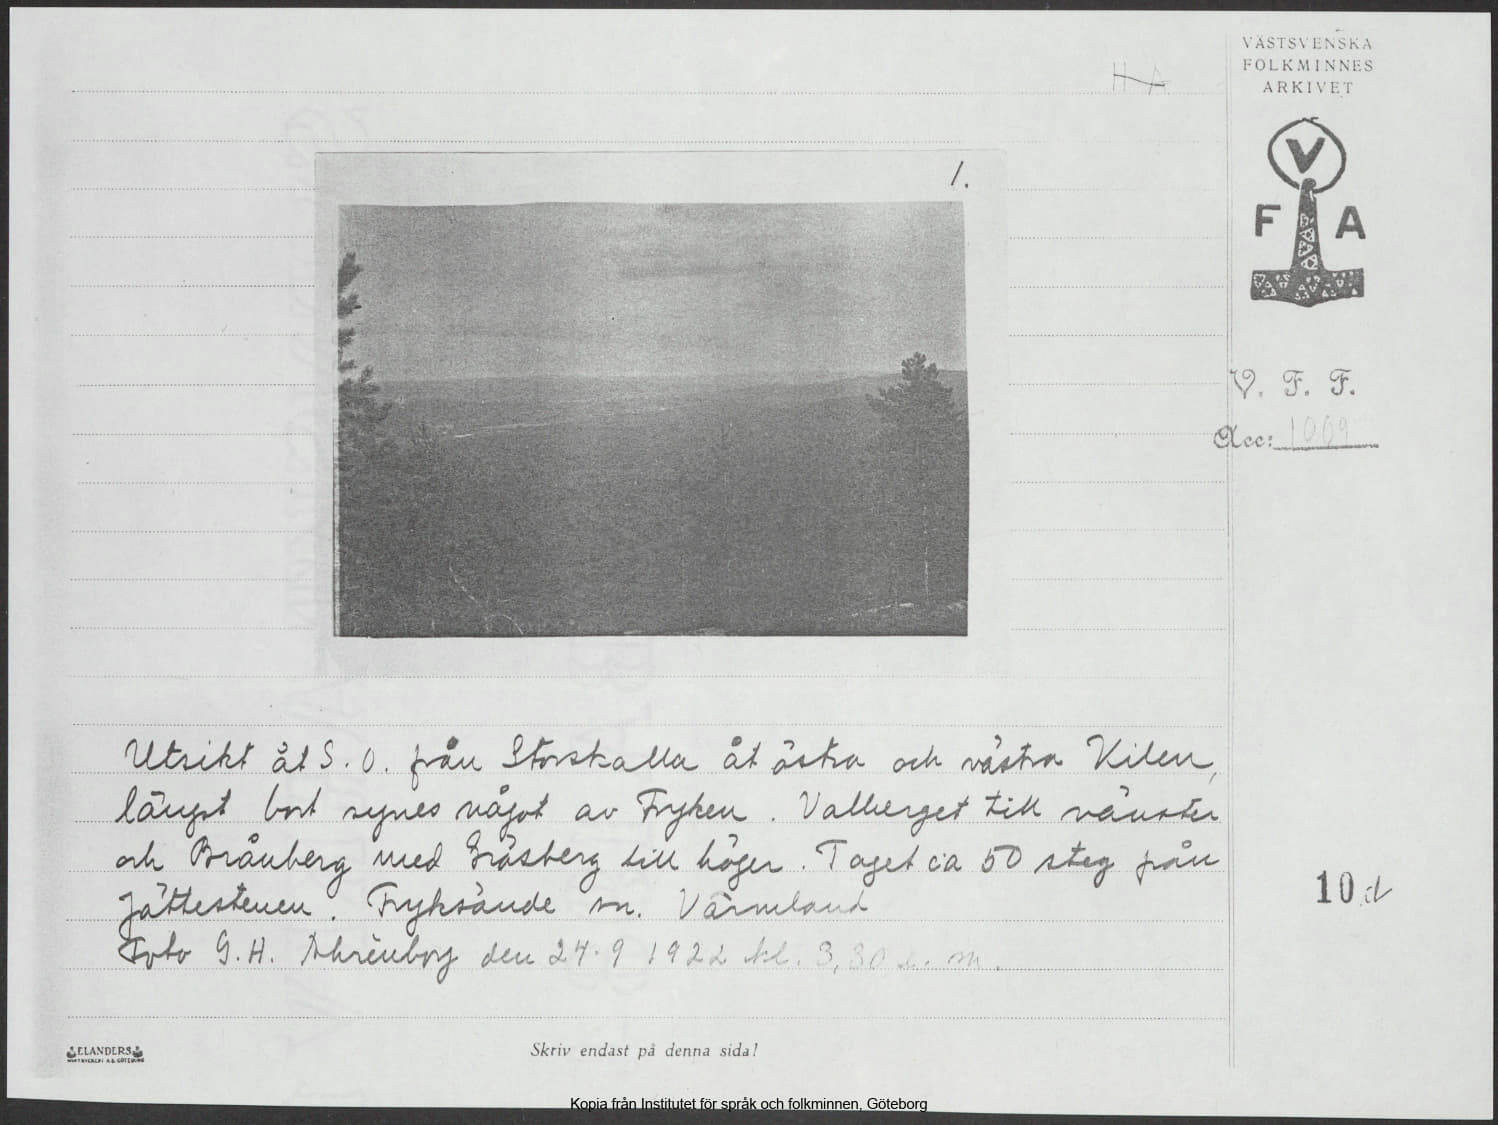 VÄSTSVENSKA
FOLKMINNES
ARKIVET
H A
V
F A
1.
V. F. F.
Acc: 1009
Utsikt åt S.O. från Storskalla åt östra och västra Kilen,
längst bort synes något av Fryken. Valberget till vänster
och Brånberg med Gräsberg till höger. Taget ca 50 steg från
Jättestenen. Fryksände sn. Värmland
Foto G.H. Ahrénborg den 24.9 1922 kl. 3,30 e.m.
10 d
ELANDERS
Skriv endast på denna sida!
Kopia från Institutet för språk och folkminnen, Göteborg